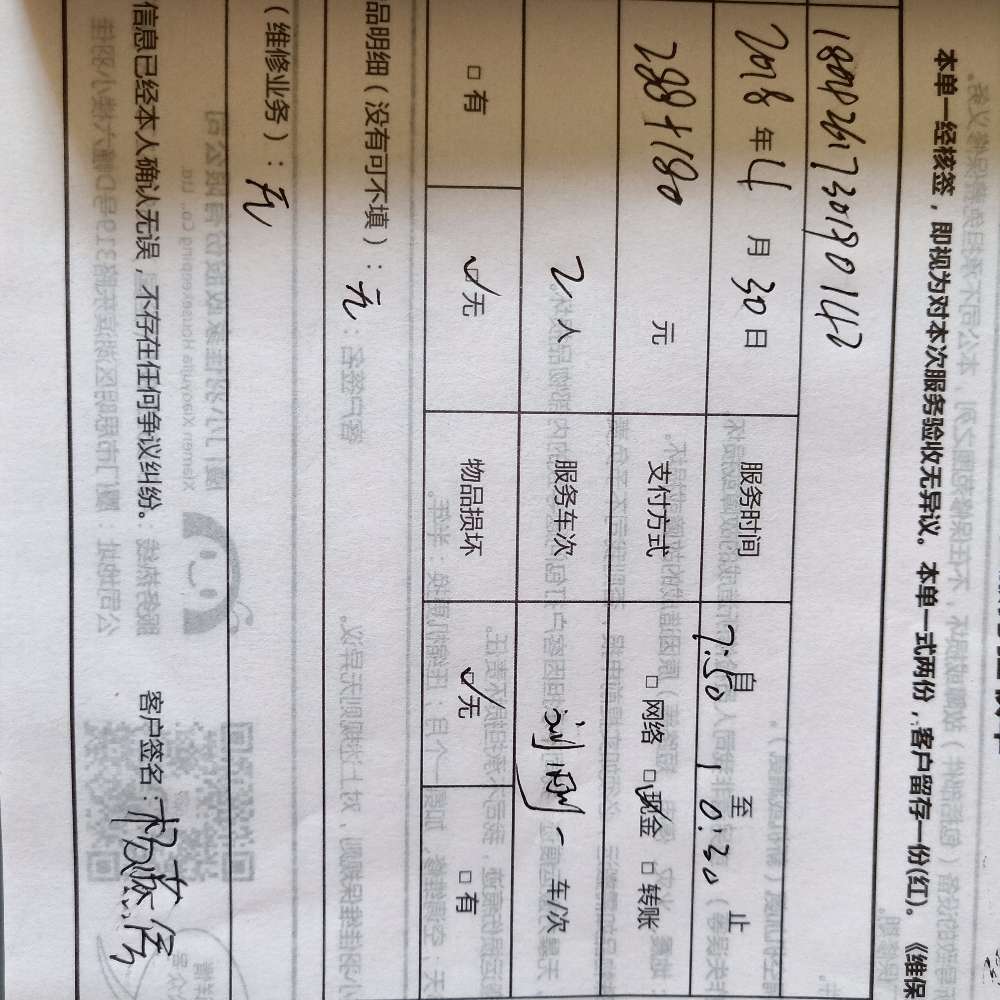 本单一经核签，即视为对本次服务验收无异议。本单一式两份，客户留存一份(红)。《维保
1809261730180142
2018年4月30日 服务时间 自7:50 至10:30止
288+180 元 支付方式 □网络 ☑现金 □转账
2人 服务车次 一车/次
□有 ☑无 物品损坏 ☑无 □有
品明细（没有可不填）：无
（维修业务）：无
信息已经本人确认无误，不存在任何争议纠纷。 客户签名：